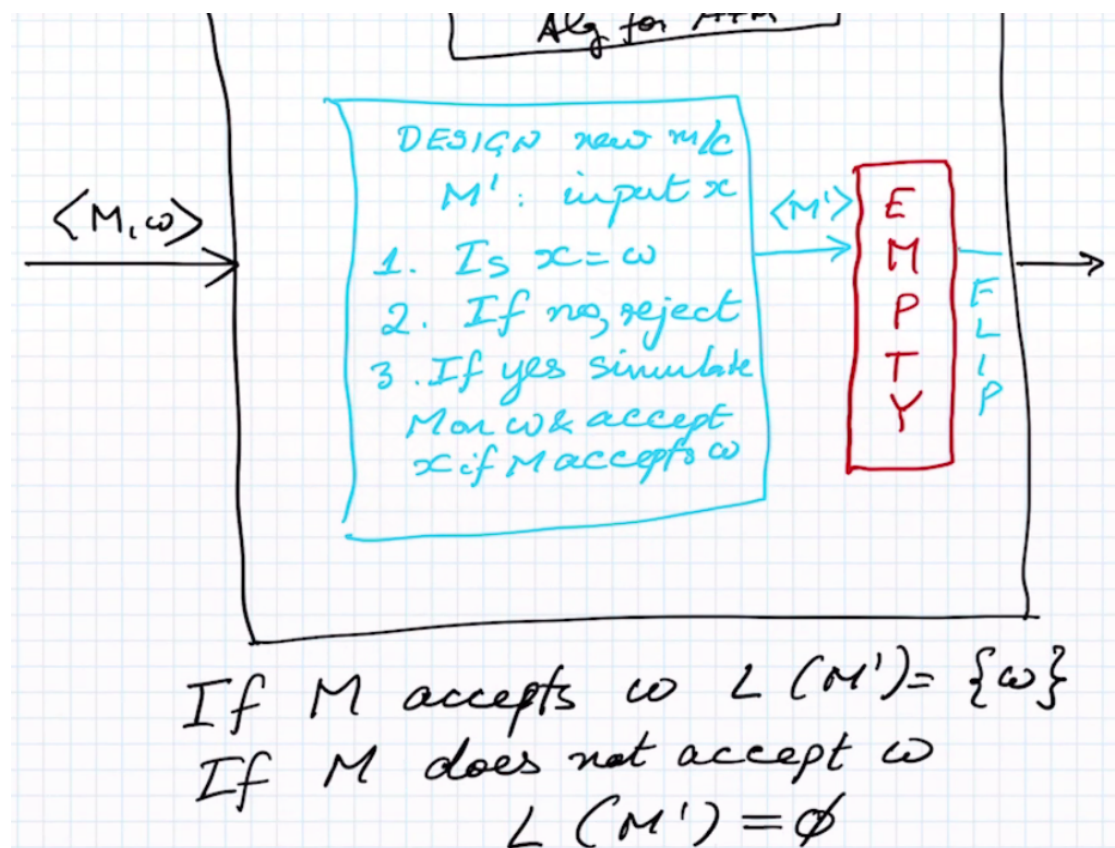 Alg for ATM
DESIGN new m/c
M' : input x
1. Is x = ω
2. If no, reject
3. If yes simulate
M on ω & accept
x if M accepts ω
<M, ω>
<M'>
EMPTY
FLIP
If M accepts ω L (M') = {ω}
If M does not accept ω
L (M') = ∅